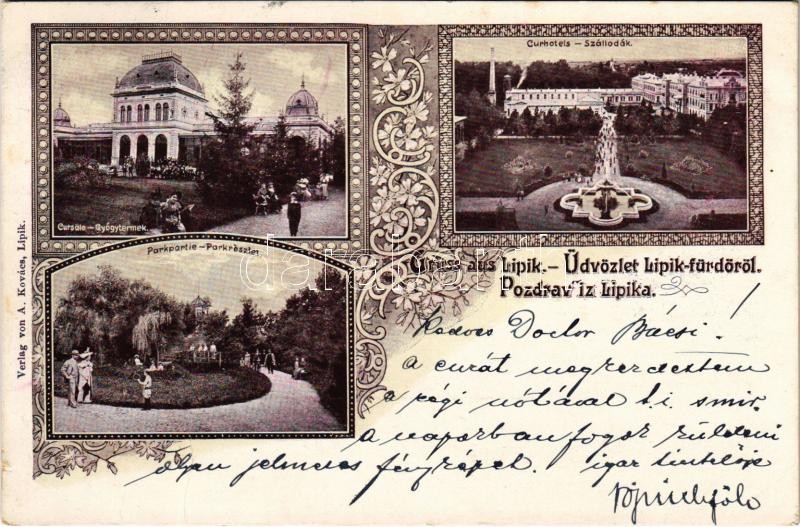 Curhotels – Szállodák.
Cursäle – Gyógytermek.
Parkpartie – Parkrészlet
Verlag von A. Kovács, Lipik.
Gruss aus Lipik. – Üdvözlet Lipik-fürdőről.
Pozdrav iz Lipika.
Kedves Doctor Bácsi!
A curát megkezdettem
a régi nótával t. i.
a napokban fogok küldeni
olyan jelmezes fényképet. igaz
darabanth